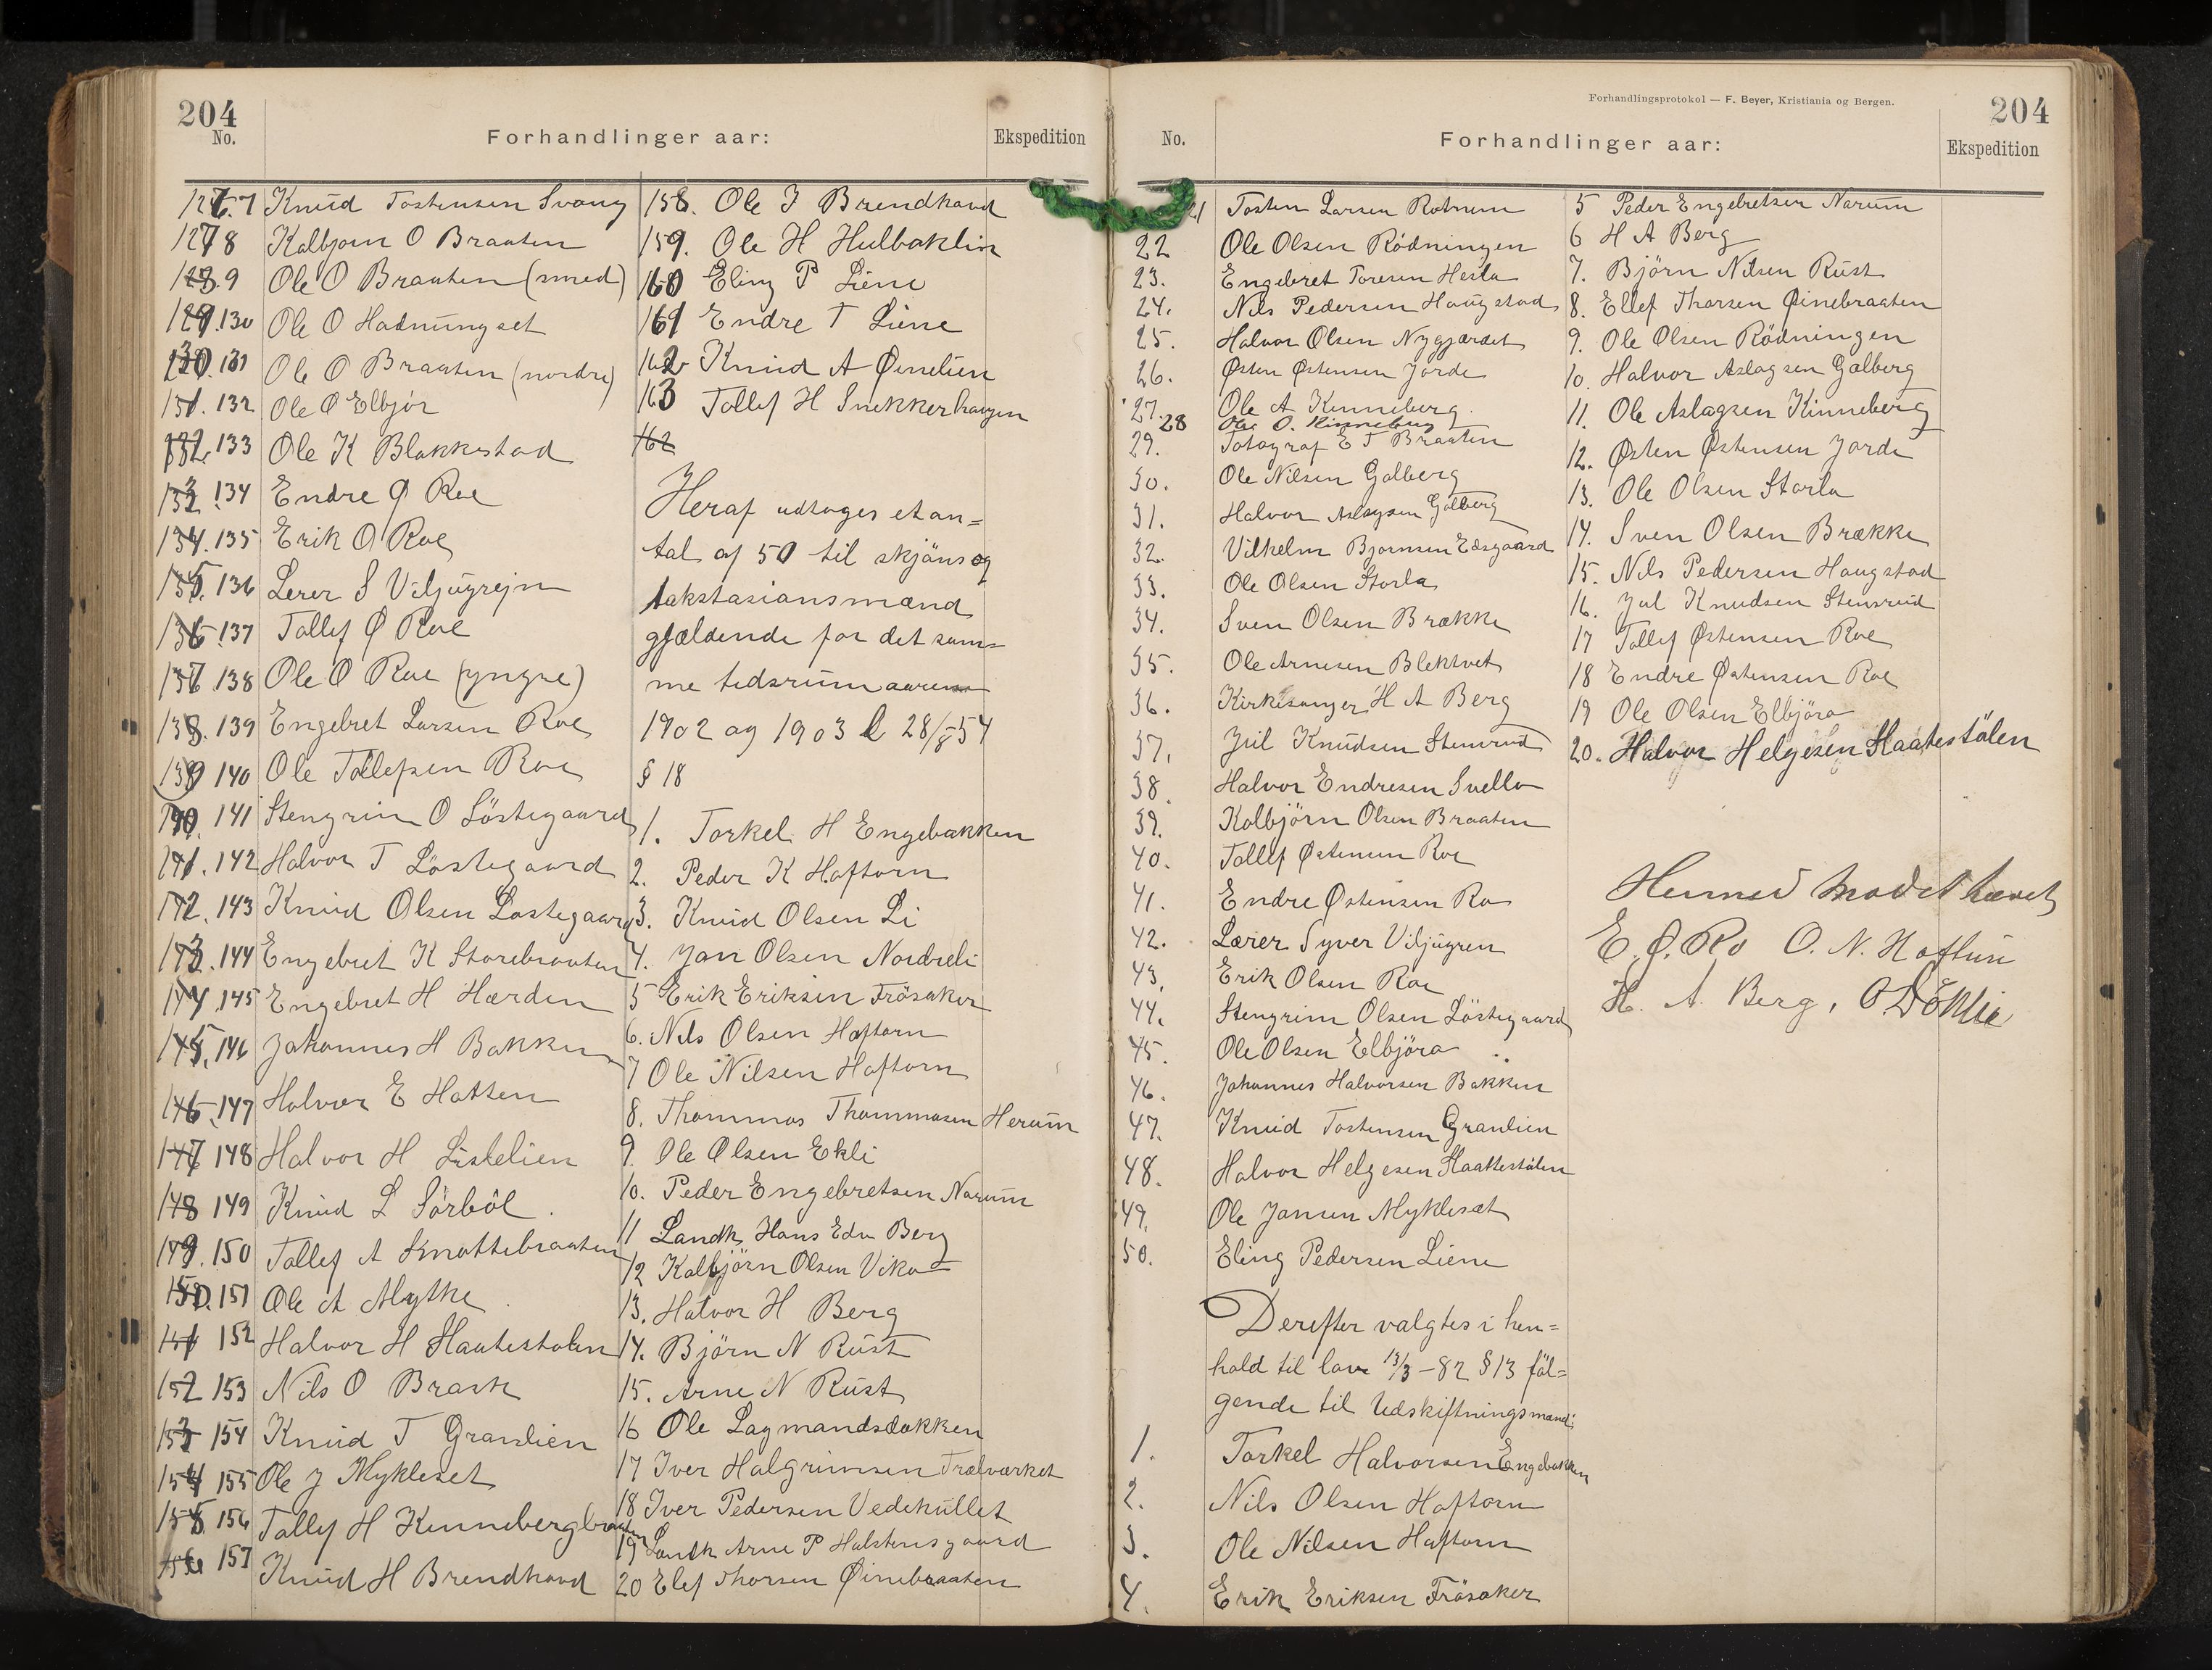 204
No.
Forhandlinger aar:
Ekspedition
127 Knud Tostensen Svang
128 Kolbjørn O Braaten
129 Ole O Braaten (smed)
130 Ole O Hadnungset
131 Ole O Braaten (nordre)
132 Ole O Elbjör
133 Ole K Blakkestad
134 Endre Ø Roe
135 Erik O Roe
136 Lerer S Viljugrejn
137 Tollef Ø Roe
138 Ole O Roe (yngre)
139 Engebret Larsen Roe
140 Ole Tollefsen Roe
141 Stengrim O Löstegaard
142 Halvor T Löstegaard
143 Knud Olsen Löstegaard
144 Engebret K Storebraaten
145 Engebret H Hærden
146 Johannes H Bakken
147 Halvor E Hatten
148 Halvor H Liskelien
149 Knud L Sörböl
150 Tollef A Knattebraaten
151 Ole A Mythe
152 Halvor H Slaatestølen
153 Nils O Brask
154 Knud T Granlien
155 Ole J Mykleset
156 Tollef H Kinnebergbraaten
157 Knud H Brendhovd
158. Ole I Brendhovd
159. Ole H Hulbaklin
160 Eling P Liene
161 Endre T Liene
162 Knud A Øinelien
163 Tollef H Snekkerhaugen
162
Heraf udtoges et an=
tal af 50 til skjöns og
takstasionsmænd
gjældende for det sam=
me tidsrum aarene
1902 og 1903 l 28/8 54
§ 18
1. Torkel H Engebakken
2. Peder K Haftorn
3. Knud Olsen Li
4. Jon Olsen Nordreli
5 Erik Eriksen Frösaker
6. Nils Olsen Haftorn
7 Ole Nilsen Haftorn
8. Thommas Thommasen Herum
9. Ole Olsen Ekli
10. Peder Engebretsen Narum
11 Landh. Hans Edv Berg
12 Kolbjörn Olsen Viko
13. Halvor H Berg
14. Björn N Rust
15. Arne N Rust
16 Ole Lagmandsdokken
17 Iver Halgrimsen Trælværket
18 Iver Pedersen Vedekullet
19 Landh Arne P Halstensgaard
20 Elef Thorsen Øinebraaten
Forhandlingsprotokol — F. Beyer, Kristiania og Bergen.
204
No.
Forhandlinger aar:
Ekspedition
21 Tosten Larsen Rotneim
22 Ole Olsen Rödningen
23. Engebret Toresen Hesla
24. Nils Pedersen Haugstad
25. Halvor Olsen Nygjærdet
26. Østen Østensen Jorde
27. Ole A Kinneberg
28 Ole O. Kinneberg
29. Fotograf E T Braaten
30. Ole Nilsen Golberg
31. Halvor Aslagsen Golberg
32. Vilhelm Bjornsen Edsgaard
33. Ole Olsen Storla
34. Sven Olsen Brække
35. Ole Arnesen Blektvet
36. Kirkesanger H A Berg
37. Jul Knudsen Stensrud
38. Halvor Endresen Svello
39. Kolbjörn Olsen Braaten
40. Tollef Østensen Roe
41. Endre Østensen Ro
42. Lærer Syver Viljugren
43. Erik Olsen Roe
44. Stengrim Olsen Löstegaard
45. Ole Olsen Elbjöra
46. Johannes Halvorsen Bakken
47. Knud Tostensen Granlien
48. Halvor Helgesen Slaattestølen
49. Ole Jonsen Myklesæt
50. Eling Pedersen Liene
Derefter valgtes i hen=
hold til lov 13/3 – 82 § 13 föl=
gende til Udskiftningsmænd:
1. Torkel Halvorsen Engebakken
2. Nils Olsen Haftorn
3. Ole Nilsen Haftorn
4. Erik Eriksen Frösaker
5 Peder Engebretsen Narum
6 H A Berg
7. Björn Nilsen Rust
8. Ellef Thorsen Øinebraaten
9. Ole Olsen Rödningen
10. Halvor Aslagsen Golberg
11. Ole Aslagsen Kinneberg
12. Østen Østensen Jorde
13. Ole Olsen Storla
14. Sven Olsen Brække
15. Nils Pedersen Haugstad
16. Jul Knudsen Stensrud
17 Tollef Østensen Roe
18 Endre Østensen Roe
19 Ole Olsen Elbjöra
20. Halvor Helgesen Slaatestölen
Hermed mødet hævet
E. Ø. Ro O. N. Haftun
H. A. Berg, O Döhlie